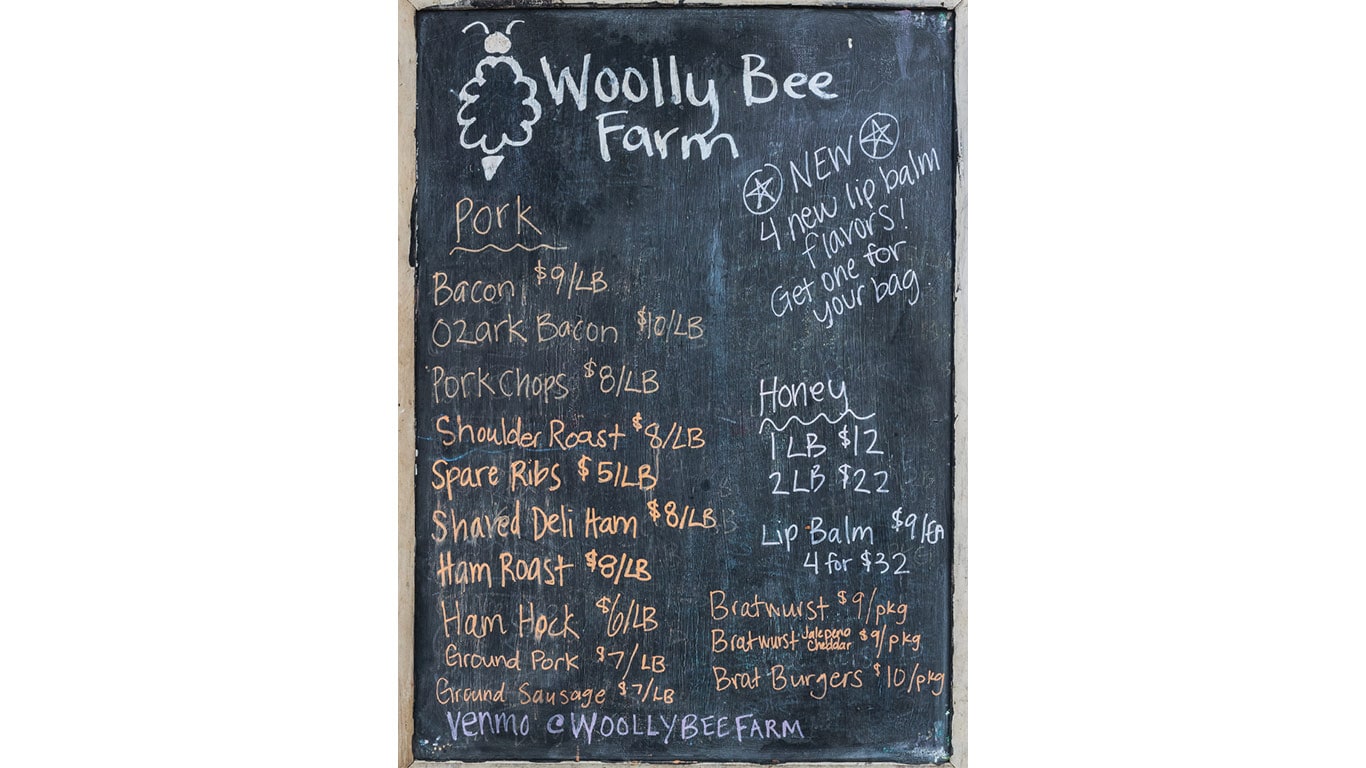 Woolly Bee
Farm
NEW
4 new lip balm
flavors!
Get one for
your bag
Pork
Bacon $9/LB
Ozark Bacon $10/LB
Pork Chops $8/LB
Shoulder Roast $8/LB
Spare Ribs $5/LB
Shaved Deli Ham $8/LB
Ham Roast $8/LB
Ham Hock $6/LB
Ground Pork $7/LB
Ground Sausage $7/LB
Honey
1 LB $12
2 LB $22
Lip Balm $9/EA
4 for $32
Bratwurst $9/pkg
Bratwurst Jalepeno Cheddar $9/pkg
Brat Burgers $10/pkg
venmo @WOOLLYBEEFARM